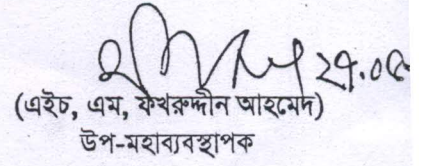 ২৭.০৫
(এইচ, এম, ফখরুদ্দীন আহমেদ)
উপ-মহাব্যবস্থাপক